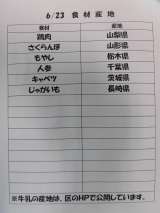 6/23 食材産地
食材 産地
鶏肉 山梨県
さくらんぼ 山形県
もやし 栃木県
人参 千葉県
キャベツ 茨城県
じゃがいも 長崎県
※牛乳の産地は、区のHPで公開しています。